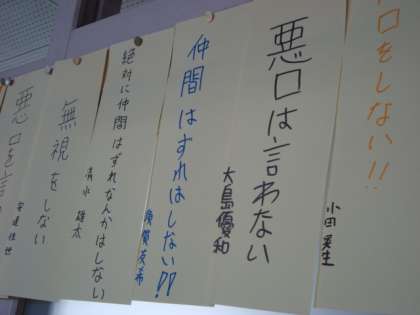 口をしない!!
小田
悪口は言わない
大島優和
仲間はずれはしない!!
絶対に仲間はずれなんかはしない
清水 雄太
無視をしない
悪口を言